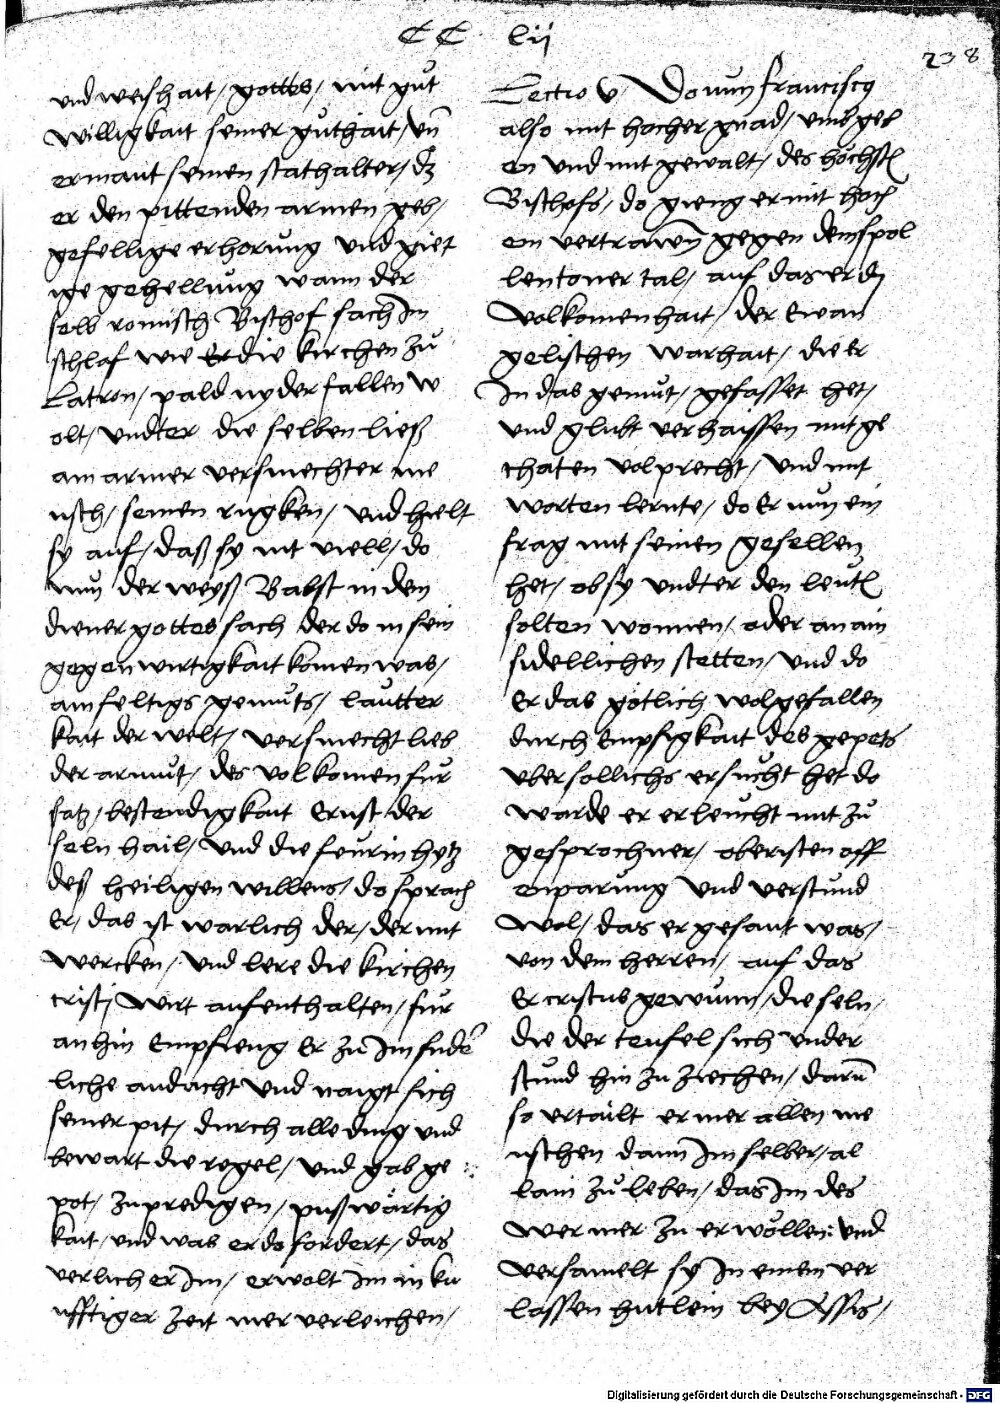 CC lij
238
und weishait / gottes / mit gut
willigkait seiner guthait / un̄
ermant seinen stathalter / dz
er den pittenden armen geb /
gefellige erhorung und giet
ige gehellung wann der
selb romisch Bischof sach Im
schlaf wie Er die kirchen zu
Latron / pald nyder fallen w
olt / undter die selben ließ
ain armer versmechter me
nsch / seinen rugken / und hielt
sy auf / daß sy nit viell / do
nun der weyß Babst in dem
diener gottes sach der do in sein
gegenwirtigkait komen was /
ainfeltigs gemuts / lautter
kait der welt / versmecht lieb
der armut / des volkomen fur
satz / bestendigkait Ernst der
seln hail / und die feurin hytz
deß heiligen willens / do sprach
Er / das ist warlich der / der mit
wercken / und lere die kirchen
cristi wirt aufenthalten / fur
anhin Empfieng Er zu Im sunde
liche andacht und naigt sich
seiner pit / durch alle ding und
bewart die regel / und gab ge
pot / zu predigen / pußwärtig
kait / und was er do fordert / das
verlich er Im / er wolt Im in ku
nfftiger zeit mer verleichen /
Lectio V Do nun franciscus
also mit hocher gnad / umbgeb
en und mit gewalt / des höchsten
Bischofs / do gieng er mit hoch
em vertrawen gegen dem spol
lentoner tal / auf das er die
volkomenhait / der Ewan
gelischen warhait / die Er
In das gemut / gefasset het /
und glubt verhaissen mit ge
thaten volprecht / und mit
worten lernte / do Er nun ein
frag mit seinen gesellen
het / ob sy undter den leuten
solten wonnen / oder an ain
sidellichen stetten / und do
Er das götlich wolgefallen
durch Empsigkait des gepets
uber sollichs ersucht het do
warde er erleucht mit zu
gesprochner / oberisten off
enparung und verstund
wol / das er gesant was /
von dem herren / auf das
Er cristus gewunn / die seln /
die der teufel sich under
stund hin zu ziechen / darum̄
so ertailt er mer allen me
nschen dann Im selber / al
lain zu leben / das Im des
wer mer zu erwöllen: und
versamelt sy In einem ver
lassen hutlein bey Assis /
Digitalisierung gefördert durch die Deutsche Forschungsgemeinschaft - DFG